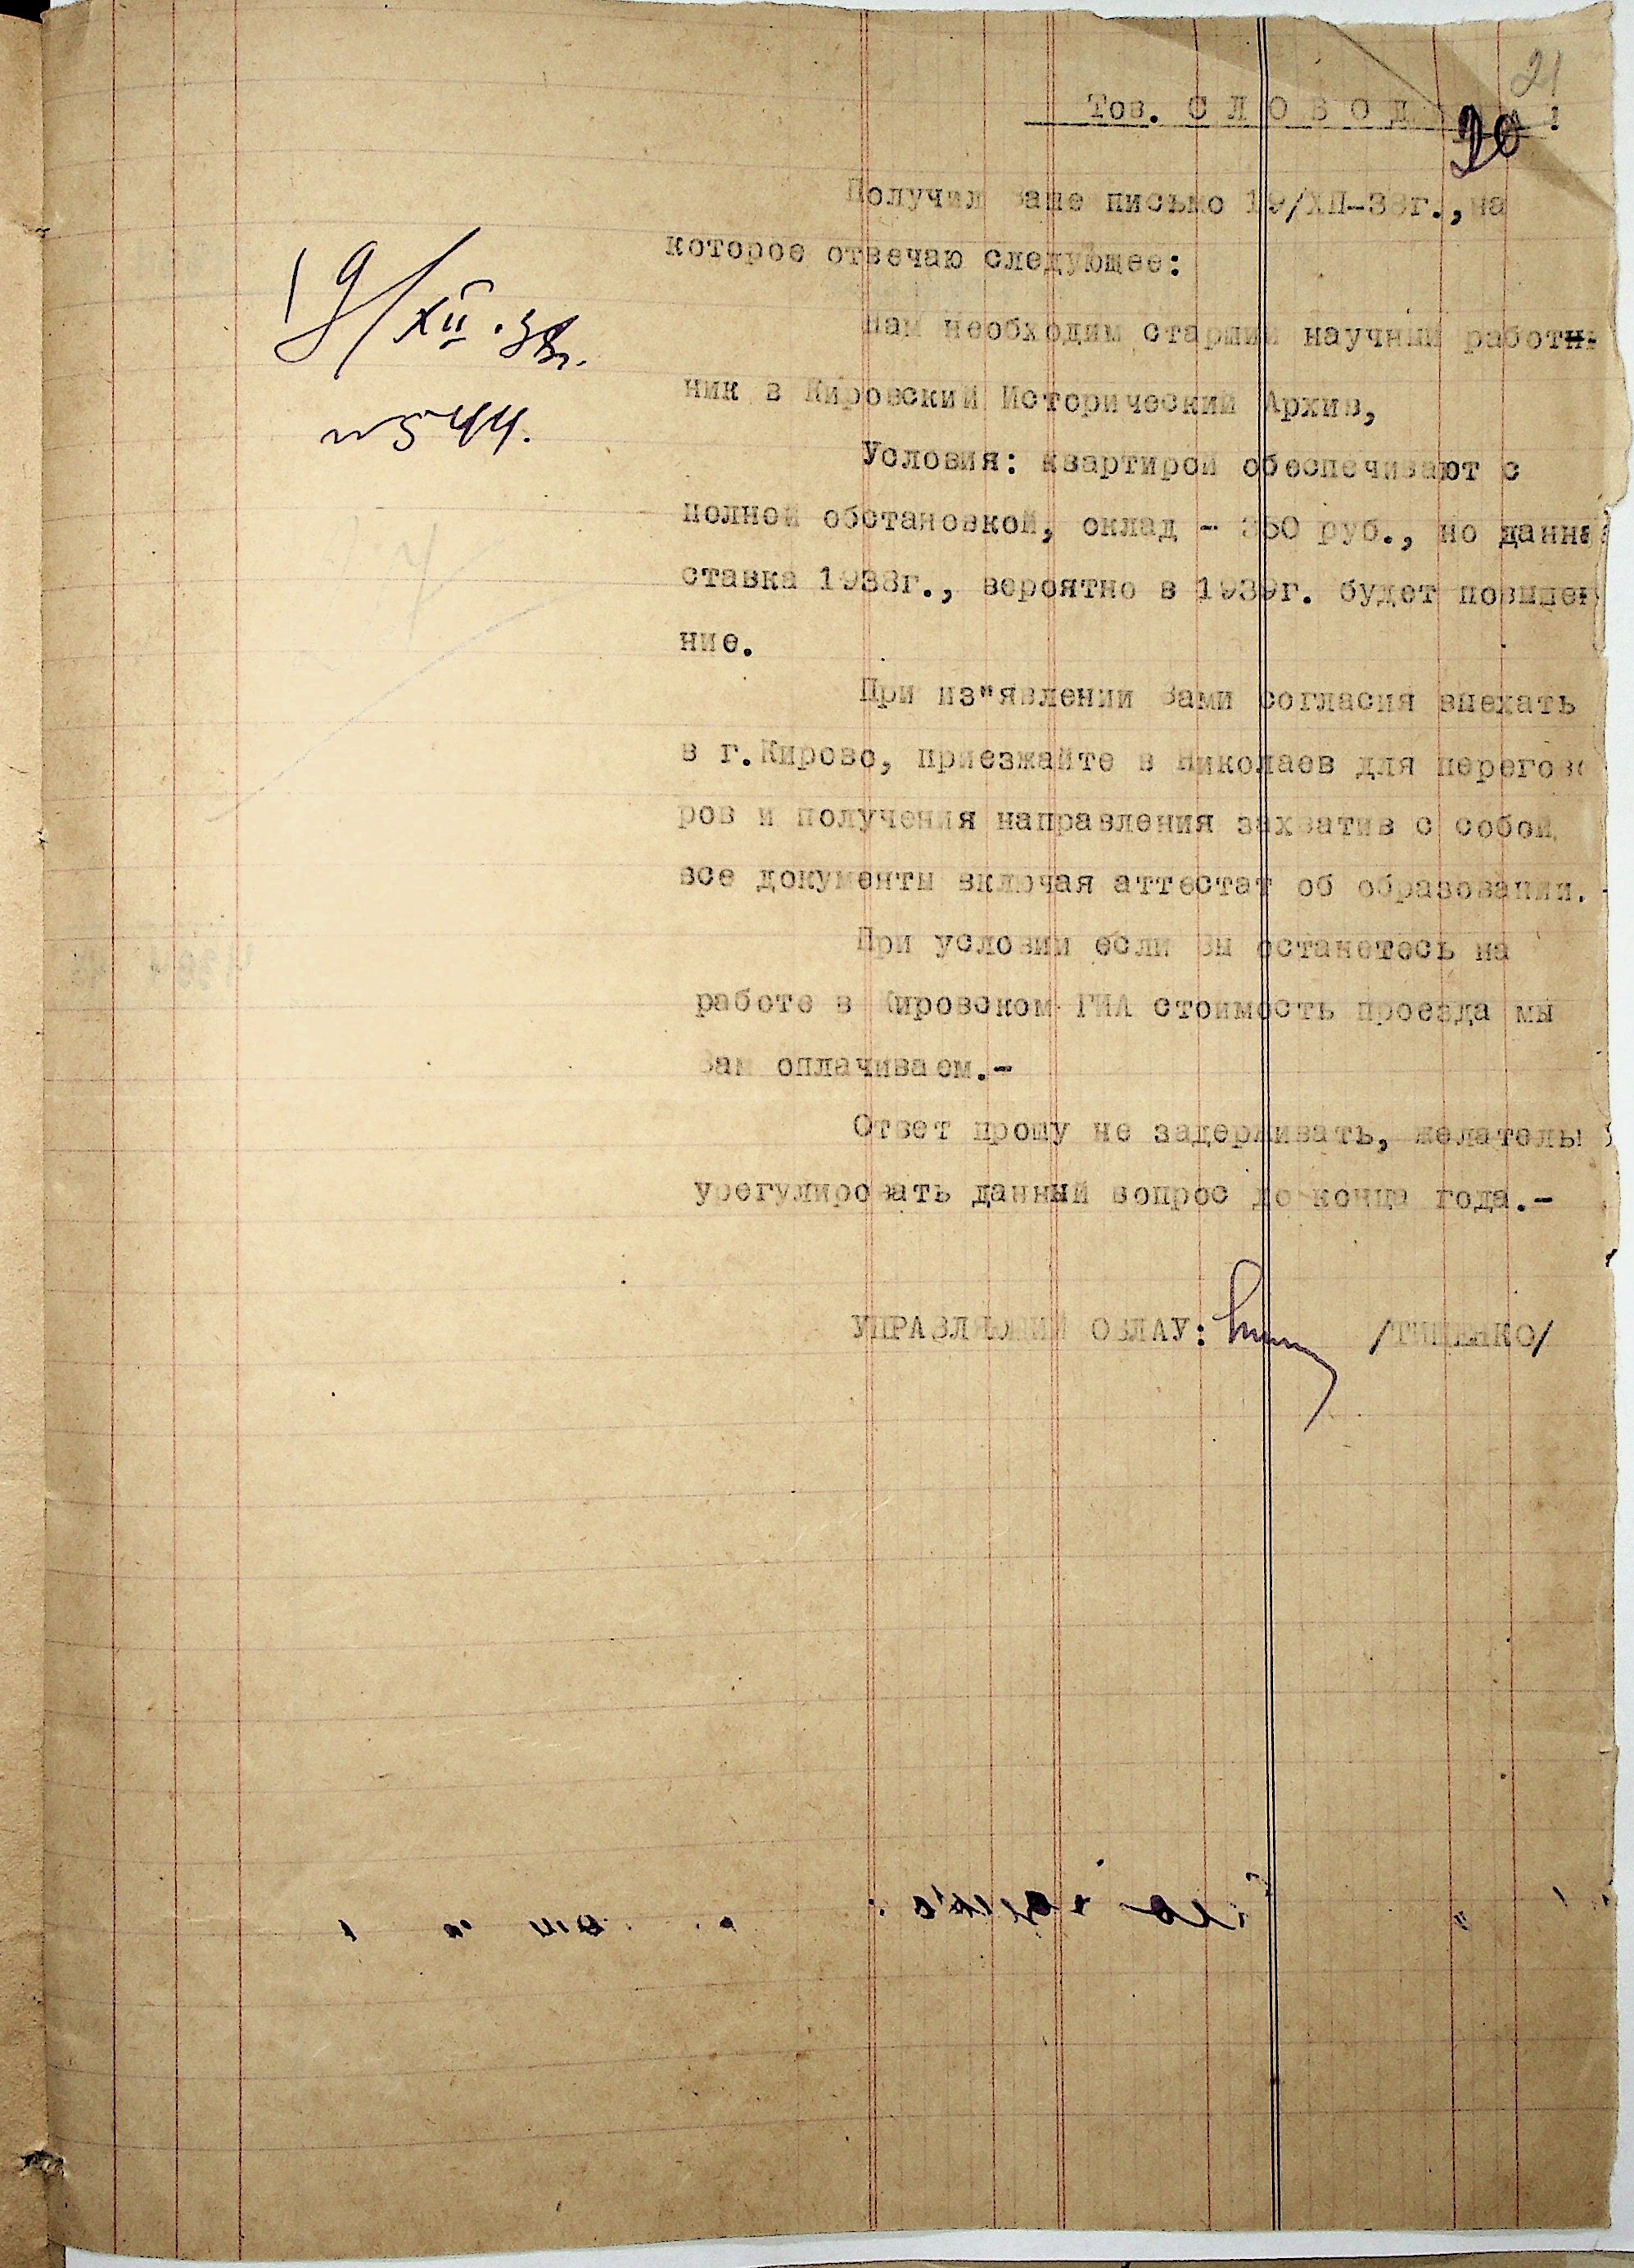 21
Тов. С Л О В О Д !
20
Получил Ваше письмо 19/XII-38г., на
которое отвечаю следующее:
19/XII.38г.
№544.
Нам необходим старший научный работни-
ник в Кировский Исторический Архив,
Условия: квартирой обеспечивают с
полной обстановкой, оклад - 350 руб., но данна
ставка 1938г., вероятно в 1939г. будет повышен
ние.
При из"явлении Вами согласия выехать
в г.Кирово, приезжайте в Николаев для перегово
ров и получения направления захватив с собой
все документы включая аттестат об образовании.-
При условии если Вы останетесь на
работе в Кировском ГИА стоимость проезда мы
Вам оплачиваем.-
Ответ прошу не задерживать, желательн
урегулировать данный вопрос до конца года.-
УПРАВЛЯЮЩИЙ ОБЛАУ: /ТИЩЕНКО/